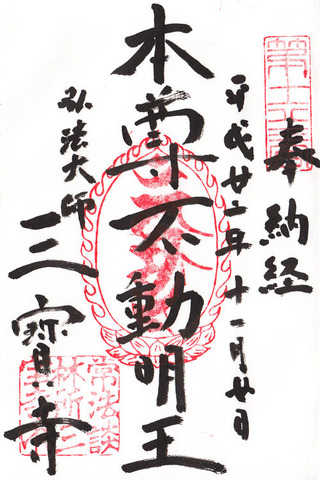 奉納経
平成廿二年十一月廿日
本尊不動明王
弘法大師
三寳寺
常法談